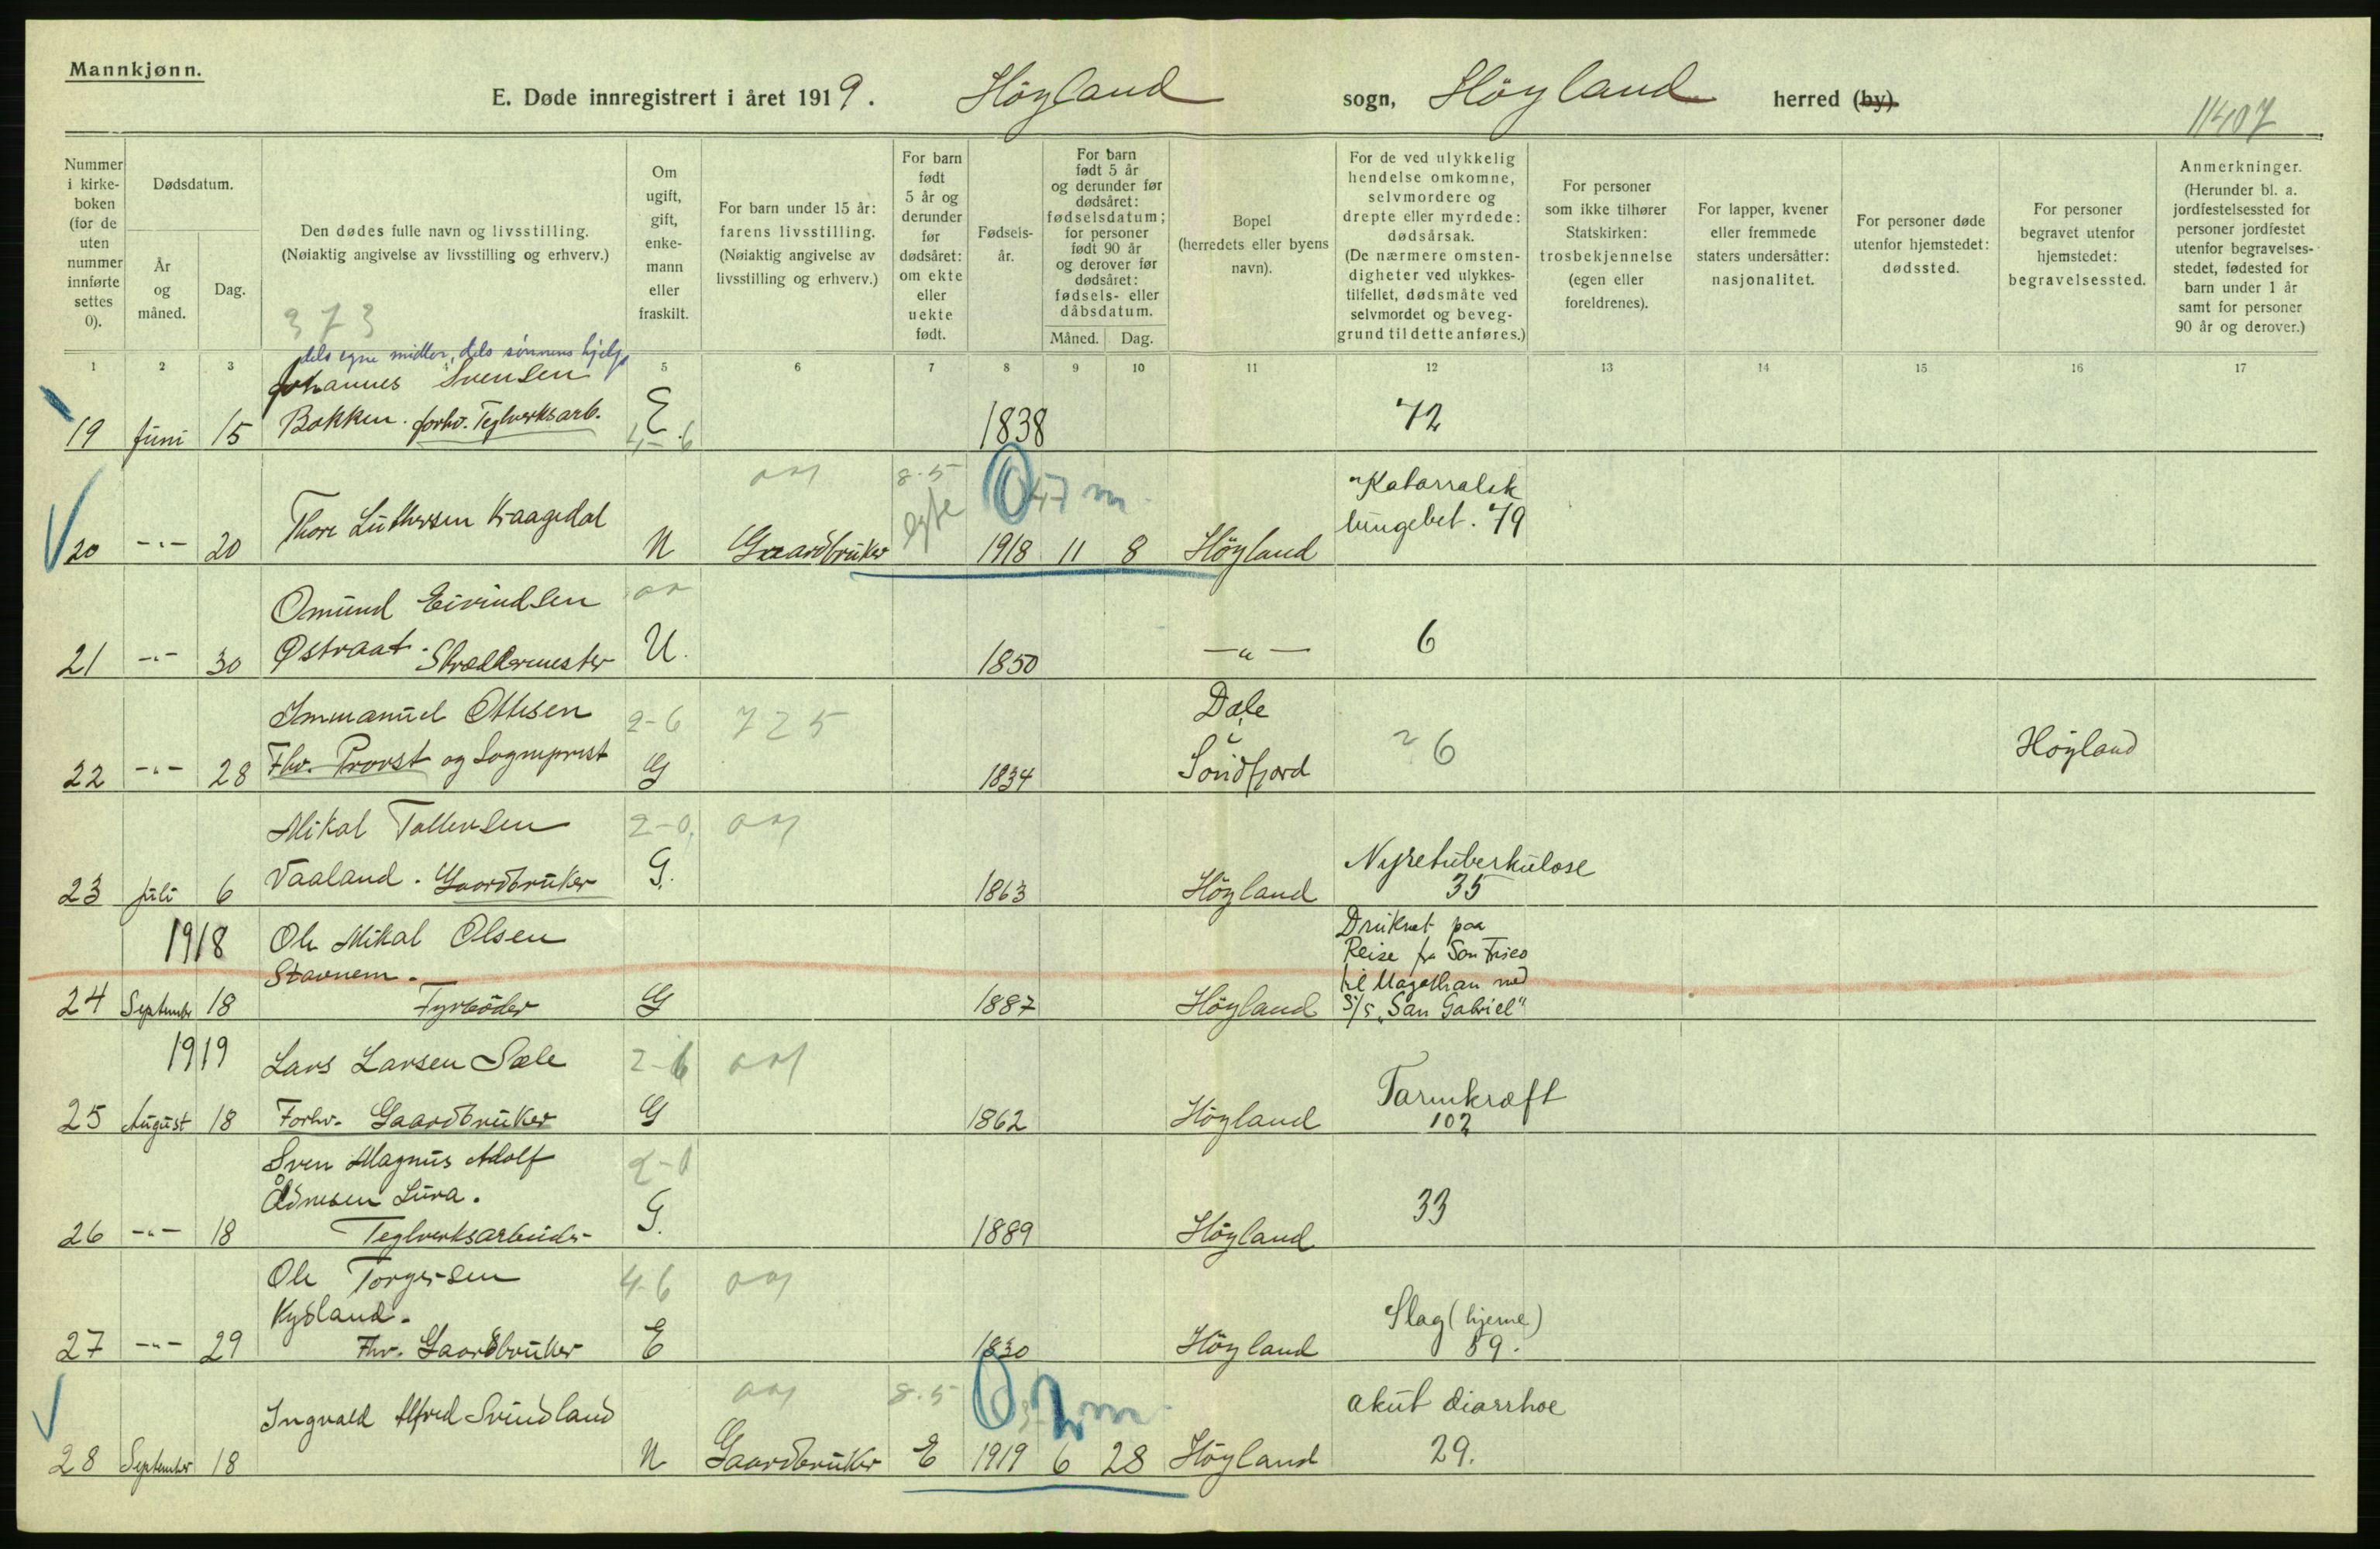 Mannkjønn.
E. Døde innregistrert i året 1919. Höyland sogn, Höyland herred (by).
11407
Nummer i kirke- boken (for de uten nummer innførte settes 0).
Dødsdatum.
År og måned.
Dag.
Den dødes fulle navn og livsstilling.
(Nøiaktig angivelse av livsstilling og erhverv.)
373
Om ugift, gift, enke- mann eller fraskilt.
For barn under 15 år: farens livsstilling.
(Nøiaktig angivelse av livsstilling og erhverv.)
For barn født 5 år og derunder før dødsåret: om ekte eller uekte født.
Fødsels- år.
For barn født 5 år og derunder før dødsåret: fødselsdatum; for personer født 90 år og derover før dødsåret: fødsels- eller dåbsdatum.
Måned. Dag.
Bopel (herredets eller byens navn).
For de ved ulykkelig hendelse omkomne, selvmordere og drepte eller myrdede: dødsårsak.
(De nærmere omsten- digheter ved ulykkes- tilfellet, dødsmåte ved selvmordet og beveg- grund til dette anføres.)
For personer som ikke tilhører Statskirken: trosbekjennelse (egen eller foreldrenes).
For lapper, kvener eller fremmede staters undersåtter: nasjonalitet.
For personer døde utenfor hjemstedet: dødssted.
For personer begravet utenfor hjemstedet: begravelsessted.
Anmerkninger.
(Herunder bl. a. jordfestelsessted for personer jordfestet utenfor begravelses- stedet, fødested for barn under 1 år samt for personer 90 år og derover.)
1 2 3 5 6 7 8 9 10 11 12 13 14 15 16 17
dels egne midler, dels sönnens hjelp
Johannes Svensen
19 Juni 15 Bakken. forhv. Teglverksarb. E 1838 72
4-6
8.5 0 47 m
egte
Katarralsk
lungebet. 79
20 -"- 20 Thore Luthersen Kraagedal U Gaardbruker 1918 11 8 Höyland
Omund Eivindsen
21 -"- 30 Østraat. Skreddermester U. 1850 -"- 6
Immanuel Ottesen 2-6 725 Dale
i
22 -"- 28 Fhv. Provst og Sogneprest G 1834 Söndfjord 26 Höyland
Mikal Tollevsen 2-0
23 Juli 6 Vaaland. Gaardbruker G. 1863 Höyland Nyretuberkulose
35
1918 Ole Mikal Olsen Druknet paa
Stavnem. Reise fra San Frisco
til Magellhan med
24 September 18 Fyrböder G 1887 Höyland S/S „San Gabriel"
1919 Lars Larsen Sæle 2-6
25 August 18 Forhv. Gaardbruker G 1862 Höyland Tarmkræft
102
Sven Magnus Adolf 2-0
Ådnesen Lura.
26 -"- 18 Teglverksarbeider G. 1889 Höyland 33
Ole Torgersen 4-6
Kydland.
27 -"- 29 Fhv. Gaardbruker E 1830 Höyland Slag (hjerne)
59.
8.5 0 2 m
Ingvald Alfred Svindland akut diarrhoe
28 September 18 U Gaardbruker E 1919 6 28 Höyland 29.